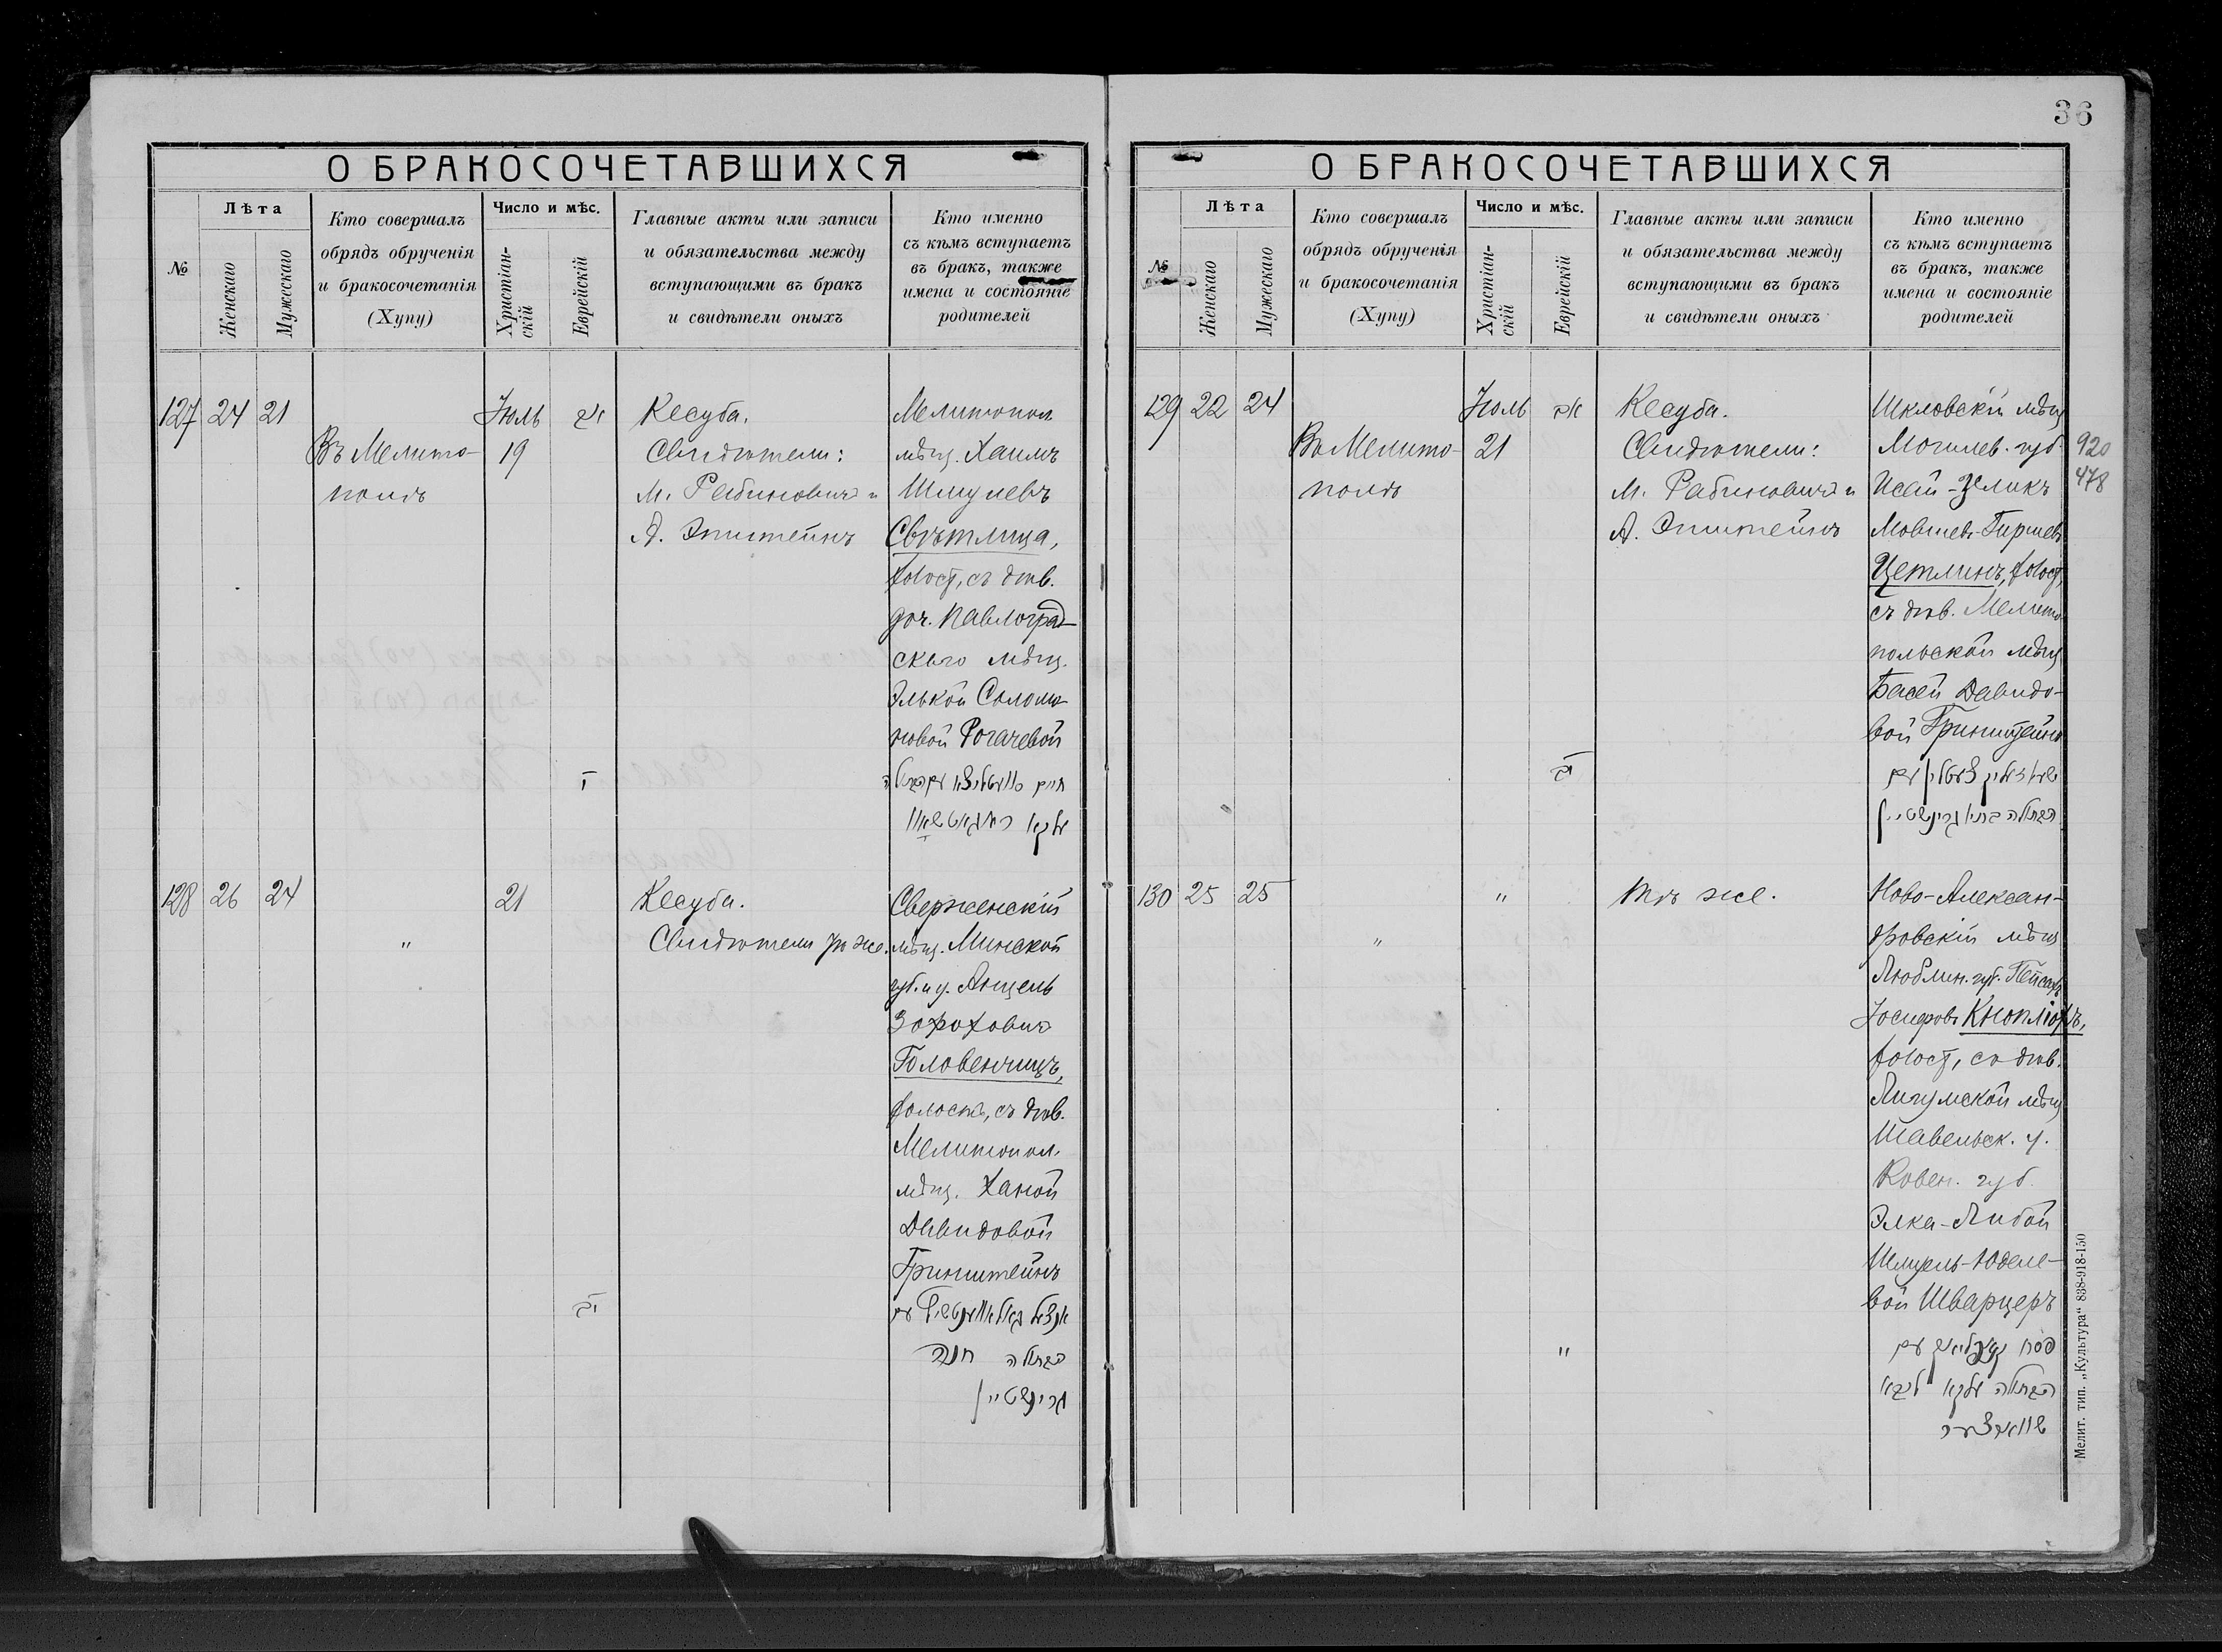 36
О БРАКОСОЧЕТАВШИХСЯ
№
Лѣта
Женскаго
Мужескаго
Кто совершалъ
обрядъ обрученія
и бракосочетанія
(Хупу)
Число и мѣс.
Христіан-
скій
Еврейскій
Главные акты или записи
и обязательства между
вступающими въ бракъ
и свидѣтели оныхъ
Кто именно
съ кѣмъ вступаетъ
въ бракъ, также
имена и состояніе
родителей
127 24 21
Въ Мелито-
полѣ
Іюль
19
Кесуба.
Свидѣтели:
М. Рабиновичъ и
А. Эпштейнъ
Мелитопол.
мѣщ. Хаимъ
Шмулевъ
Свѣтлица,
холост, съ дѣв.
доч. Павлоград-
скаго мѣщ.
Элькой Соломо-
новой Рогачевой
128 26 24
"
21
Кесуба.
Свидѣтели тѣ же.
Сверженскій
мѣщ. Минской
губ. и у. Анцель
Зорохович
Головенчицъ,
холостъ, съ дѣв.
Мелитопол.
мѣщ. Ханой
Давидовой
Гринштейнъ
הבתולה חנה
גרינשטיין
О БРАКОСОЧЕТАВШИХСЯ
№
Лѣта
Женскаго
Мужескаго
Кто совершалъ
обрядъ обрученія
и бракосочетанія
(Хупу)
Число и мѣс.
Христіан-
скій
Еврейскій
Главные акты или записи
и обязательства между
вступающими въ бракъ
и свидѣтели оныхъ
Кто именно
съ кѣмъ вступаетъ
въ бракъ, также
имена и состояніе
родителей
129 22 24
Въ Мелито-
полѣ
Іюль
21
Кесуба.
Свидѣтели:
М. Рабиновичъ и
А. Эпштейнъ
Шкловскій мѣщ
Могилев. губ.
Исай-Зеликъ
Мовшев-Гиршевъ
Цетлинъ, холост,
съ дѣв. Мелито-
польской мѣщ
Басей Давидо-
вой Гринштейнъ
920
478
130 25 25
"
"
Тѣ же.
Ново-Алексан-
дровскій мѣщ
Люблин. губ. Пейсахъ
Іосифовъ Кнопліохъ,
холост, съ дѣв.
Лигумской мѣщ
Шавельск. у.
Ковен. губ.
Элка-Либой
Шмуель-Юделе-
вой Шварцеръ
"
הבתולה עלקא ליבא
שווארצער
Мелит. тип. „Культура" 838-918-150